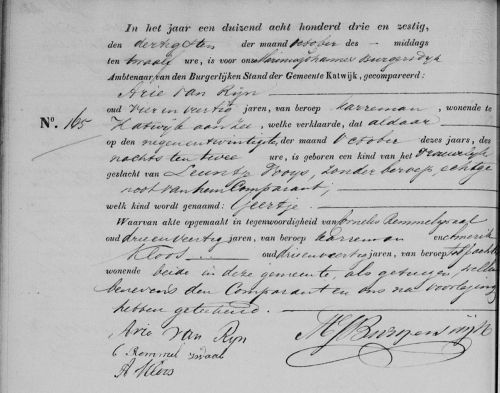 In het jaar een duizend acht honderd drie en zestig,
den dertigsten der maand October des - middags
ten twaalf ure, is voor ons Burgersdijk
Ambtenaar van den Burgerlijken Stand der Gemeente Katwijk, gecompareerd:
Arie van Rijn
oud vier en veertig jaren, van beroep karreman, wonende te
No. 165
Katwijk aan Zee, welke verklaarde, dat aldaar
op den negen en twintigste, der maand October dezes jaars, des
nachts ten twee ure, is geboren een kind van het Vrouwelijk
geslacht van Leuntje Booys, zonder beroep, echtge
noot van hem Comparant,
welk kind wordt genaamd: Geertje.
Waarvan akte opgemaakt in tegenwoordigheid van Cornelis Remmelzwaal
oud drie en veertig jaren, van beroep karreman en
Kloos oud drie en veertig jaren, van beroep
wonende beide in deze gemeente, als getuigen, hebben
benevens den Comparant en ons na voorlezing
hebben geteekend.
Arie van Rijn
C Remmelzwaal
A Kloos
Burgersdijk